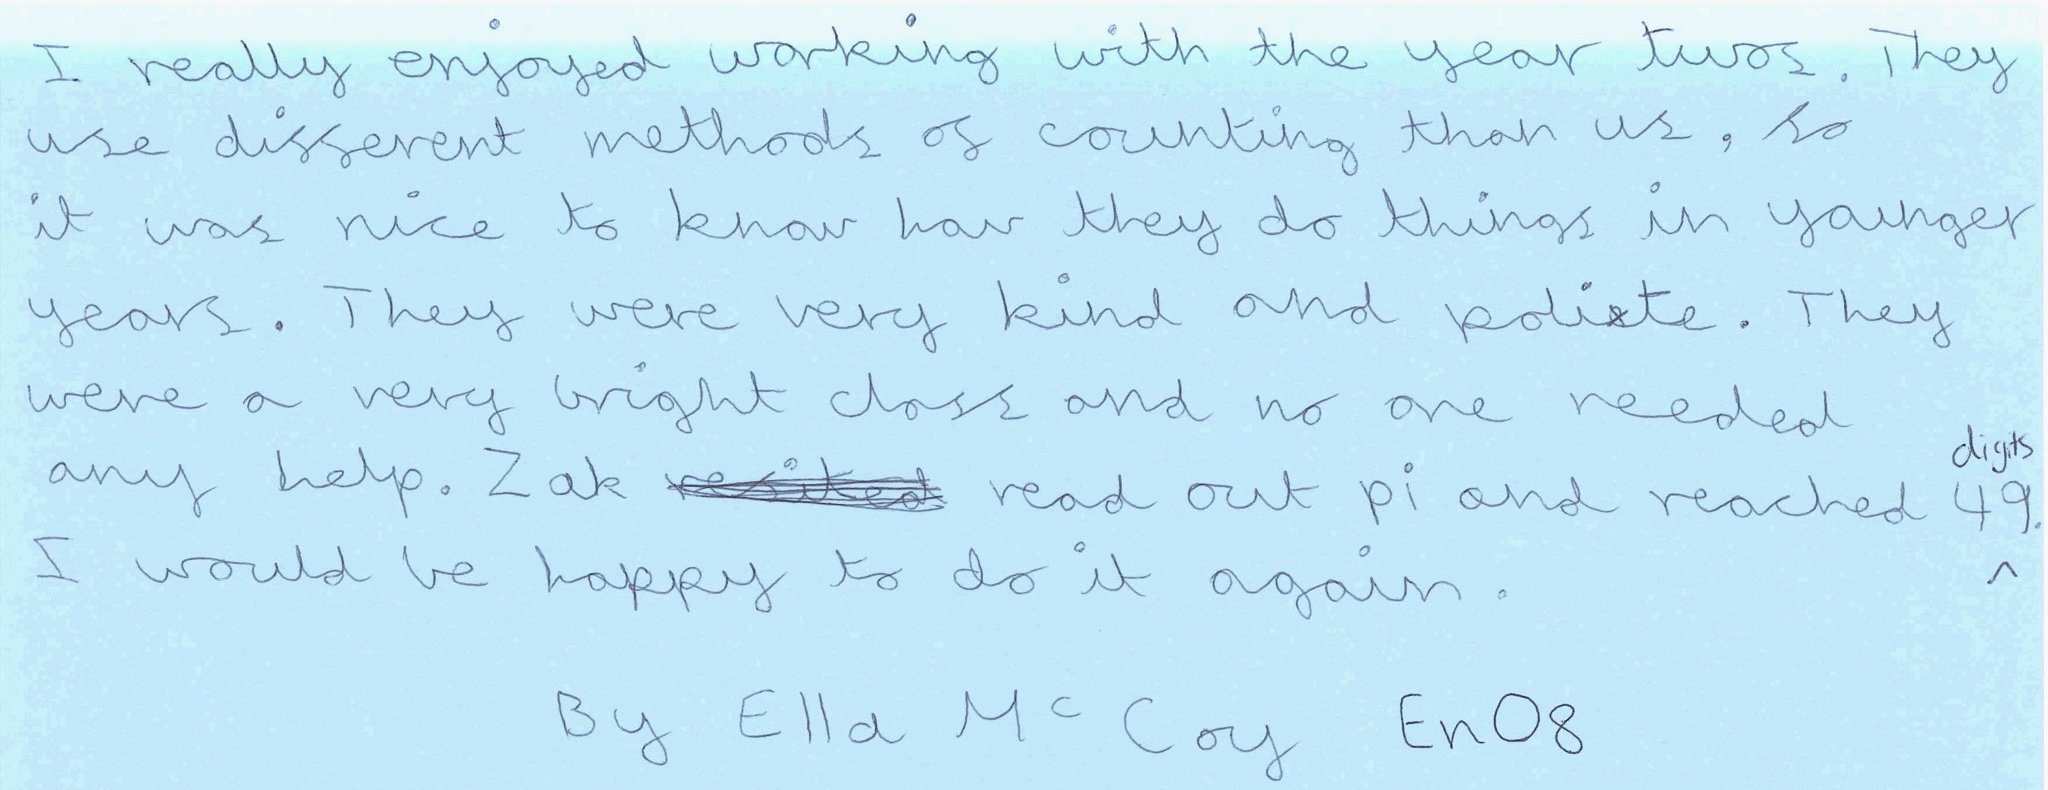 I really enjoyed working with the year twos. They
use different methods of counting than us, so
it was nice to know how they do things in younger
years. They were very kind and polite. They
were a very bright class and no one needed
digits
any help. Zak resited read out pi and reached 49.
I would be happy to do it again. ^
By Ella McCoy En08